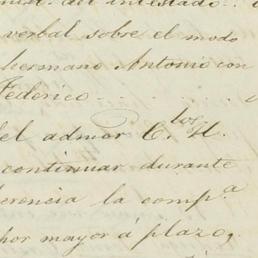 del intestado
verbal sobre el modo
hermano Antonio con
Federico . . . .
del admor C.los H.
continuar durante
herencia la comp.a
por mayor á plazo,